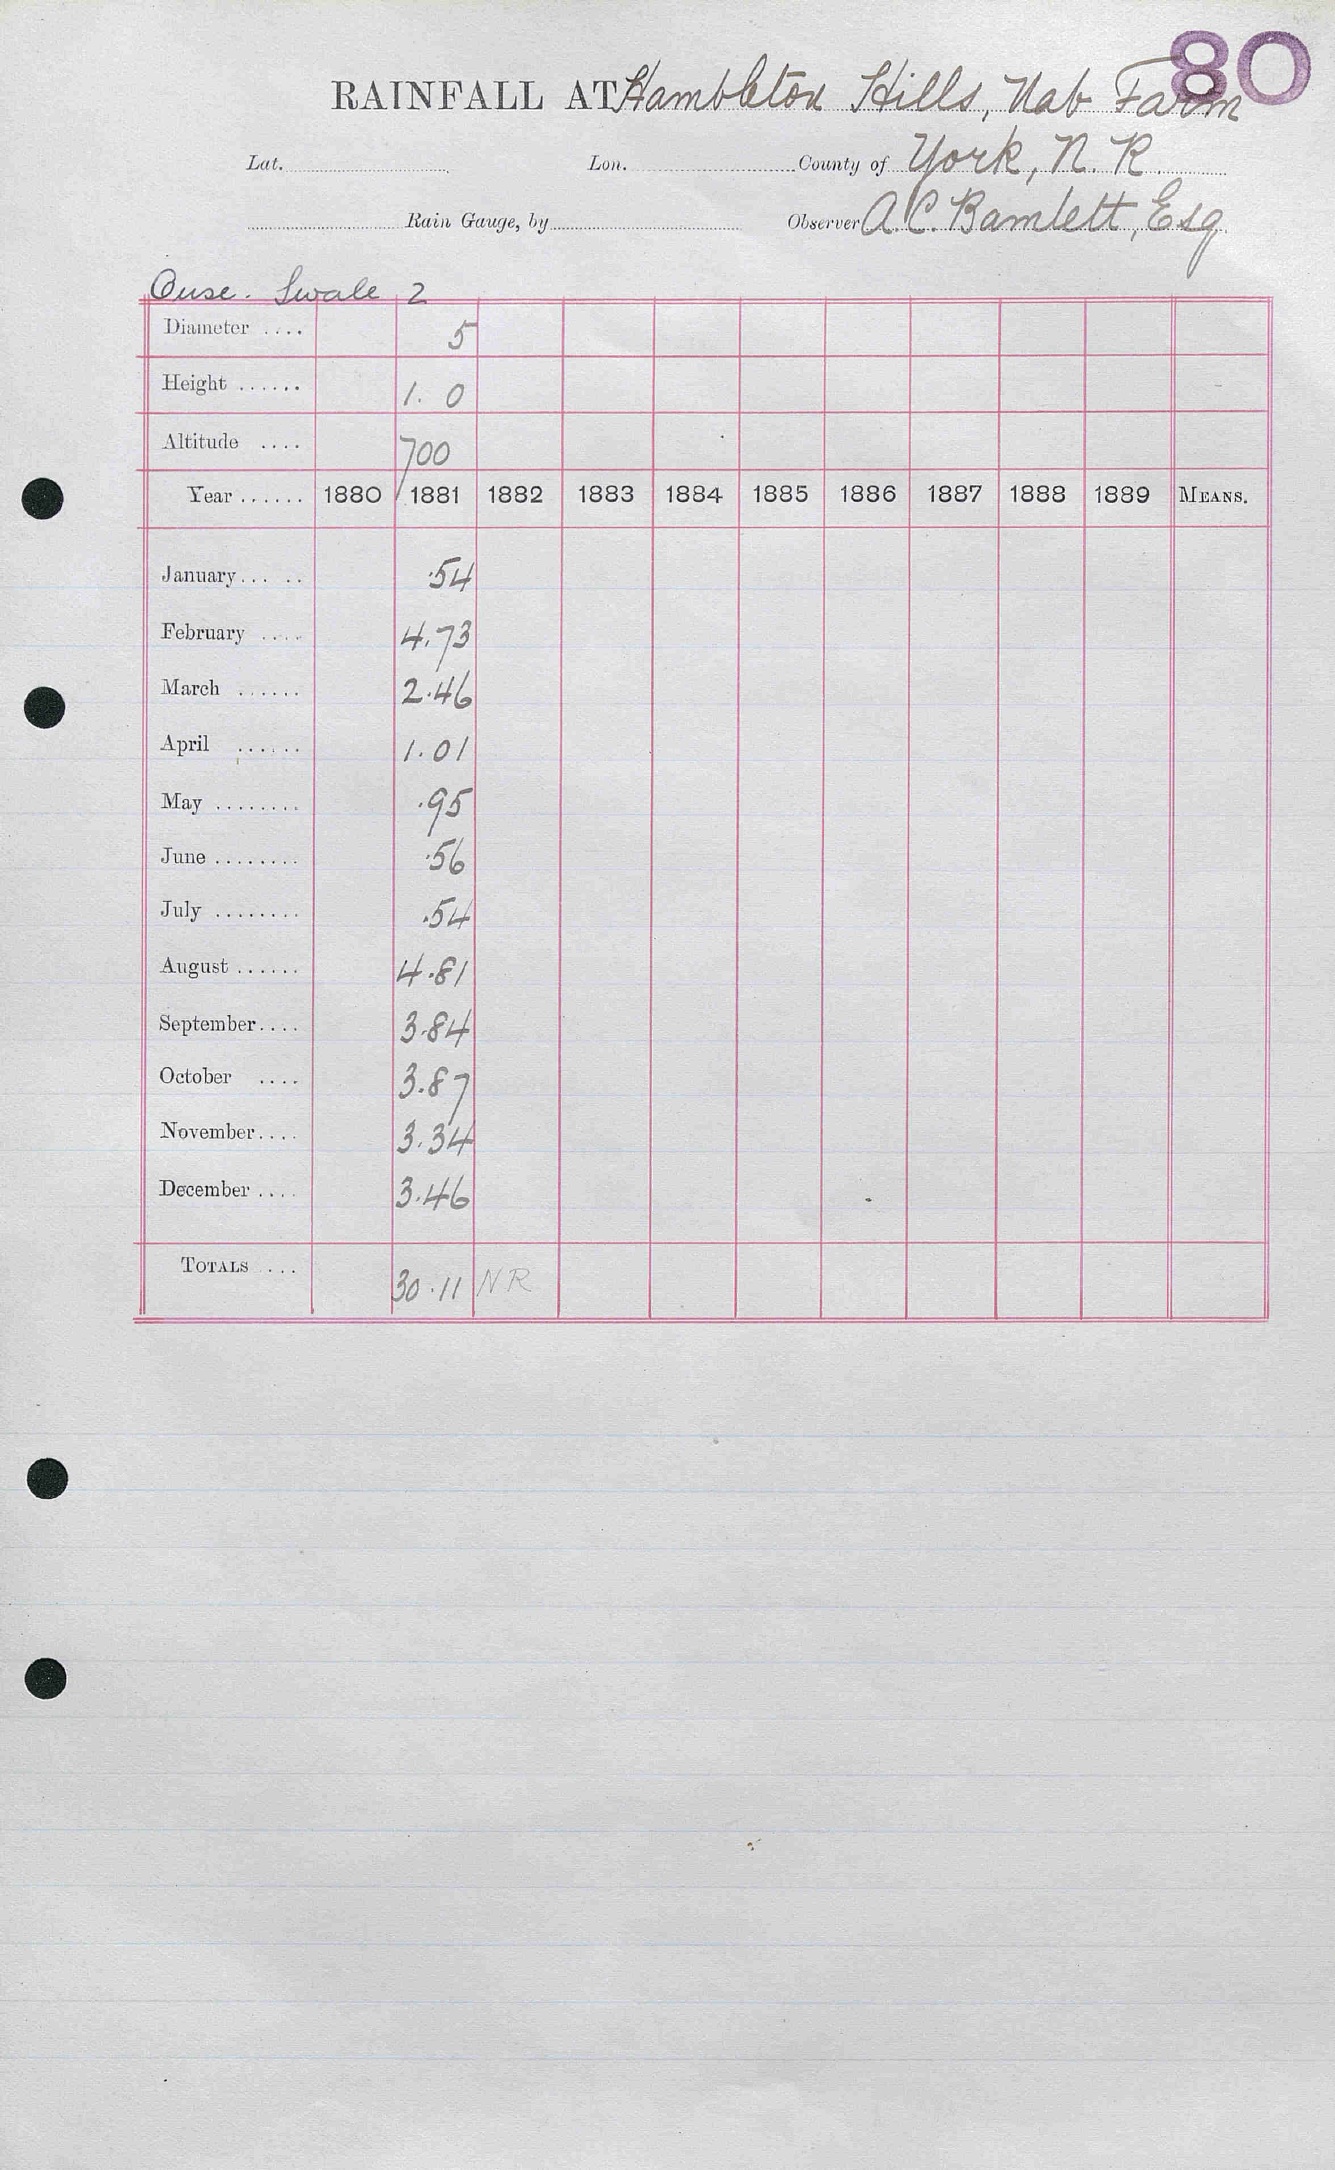 80
RAINFALL AT Hambleton Hills, Nab Farm
Lat. Lon. County of York, N. R.
Rain Gauge, by Observer A. C. Bamlett, Esq.
Ouse. Swale 2
Diameter .... 5
Height ...... 1. 0
Altitude .... 700
Year ...... 1880 1881 1882 1883 1884 1885 1886 1887 1888 1889 MEANS.
January ... .. .54
February .... 4.73
March ...... 2.46
April ...... 1.01
May ........ .95
June ........ .56
July ........ .54
August ...... 4.81
September .... 3.84
October .... 3.87
November .... 3.34
December .... 3.46
TOTALS .... 30.11 NR